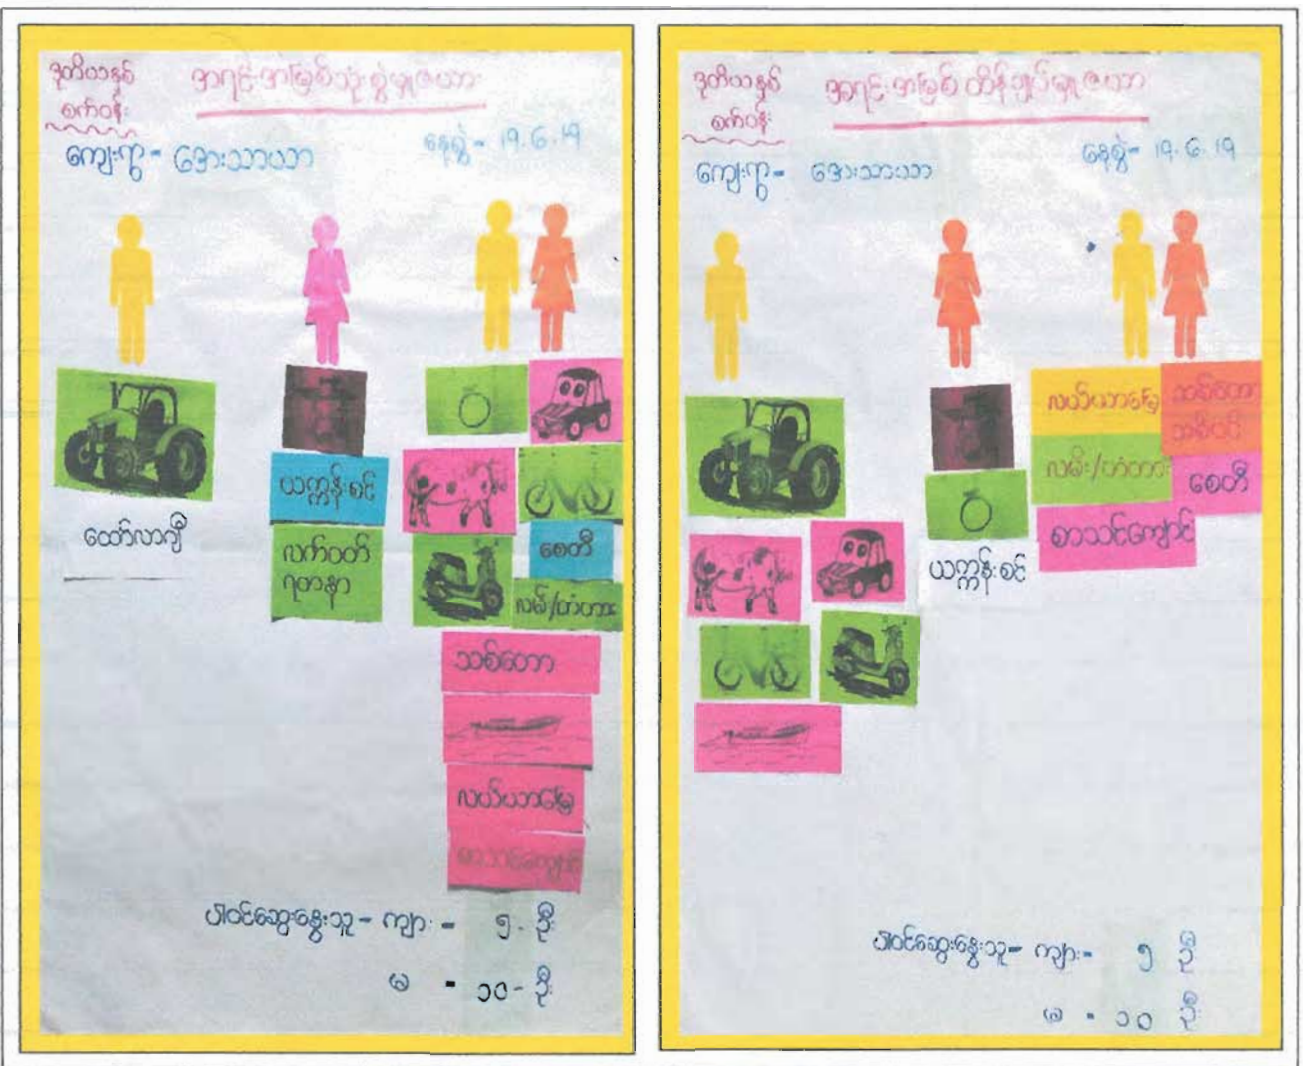 ဒုတိယနှစ်
စက်ဝန်း
အရင်းအမြစ်သုံးစွဲမှုဇယား
ကျေးရွာ- အေးသာယာ
နေ့စွဲ- ၁၅.၆.၁၅
ထော်လာဂျီ
ယက္ကန်းစင်
လက်ဝတ်
ရတနာ
စေတီ
လမ်း/တံတား
သစ်တော
လယ်ယာမြေ
စာသင်ကျောင်း
ပါဝင်ဆွေးနွေးသူ- ကျား - ၅. ဦး
မ - ၁၀- ဦး
ဒုတိယနှစ်
စက်ဝန်း
အရင်းအမြစ်ထိန်းချုပ်မှုဇယား
ကျေးရွာ- အေးသာယာ
နေ့စွဲ- ၁၅.၆.၁၅
လယ်ယာမြေ
သစ်တော
လမ်း/တံတား
စေတီ
စာသင်ကျောင်း
ယက္ကန်းစင်
ပါဝင်ဆွေးနွေးသူ- ကျား- ၅ ဦး
မ - ၁၀ ဦး